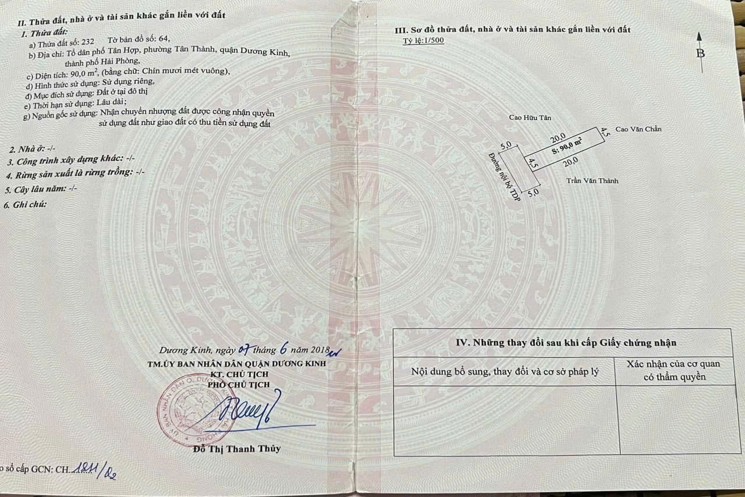 II. Thửa đất, nhà ở và tài sản khác gắn liền với đất
1. Thửa đất:
a) Thửa đất số: 232 Tờ bản đồ số: 64,
b) Địa chỉ: Tổ dân phố Tân Hợp, phường Tân Thành, quận Dương Kinh,
thành phố Hải Phòng,
c) Diện tích: 90,0 m², (bằng chữ: Chín mươi mét vuông),
d) Hình thức sử dụng: Sử dụng riêng,
đ) Mục đích sử dụng: Đất ở tại đô thị
e) Thời hạn sử dụng: Lâu dài;
g) Nguồn gốc sử dụng: Nhận chuyển nhượng đất được công nhận quyền
sử dụng đất như giao đất có thu tiền sử dụng đất
2. Nhà ở: -/-
3. Công trình xây dựng khác: -/-
4. Rừng sản xuất là rừng trồng: -/-
5. Cây lâu năm: -/-
6. Ghi chú:
Dương Kinh, ngày 07 tháng 6 năm 2018
TM.ỦY BAN NHÂN DÂN QUẬN DƯƠNG KINH
KT. CHỦ TỊCH
PHÓ CHỦ TỊCH
Đỗ Thị Thanh Thủy
o sổ cấp GCN: CH
III. Sơ đồ thửa đất, nhà ở và tài sản khác gắn liền với đất
Tỷ lệ:1/500
B
Cao Hữu Tân
Cao Văn Chẵn
20,0
4,5
S: 90,0 m²
5,0
4,5
20,0
Trần Văn Thành
Đường nội bộ TDP
5,0
IV. Những thay đổi sau khi cấp Giấy chứng nhận
Nội dung bổ sung, thay đổi và cơ sở pháp lý
Xác nhận của cơ quan
có thẩm quyền